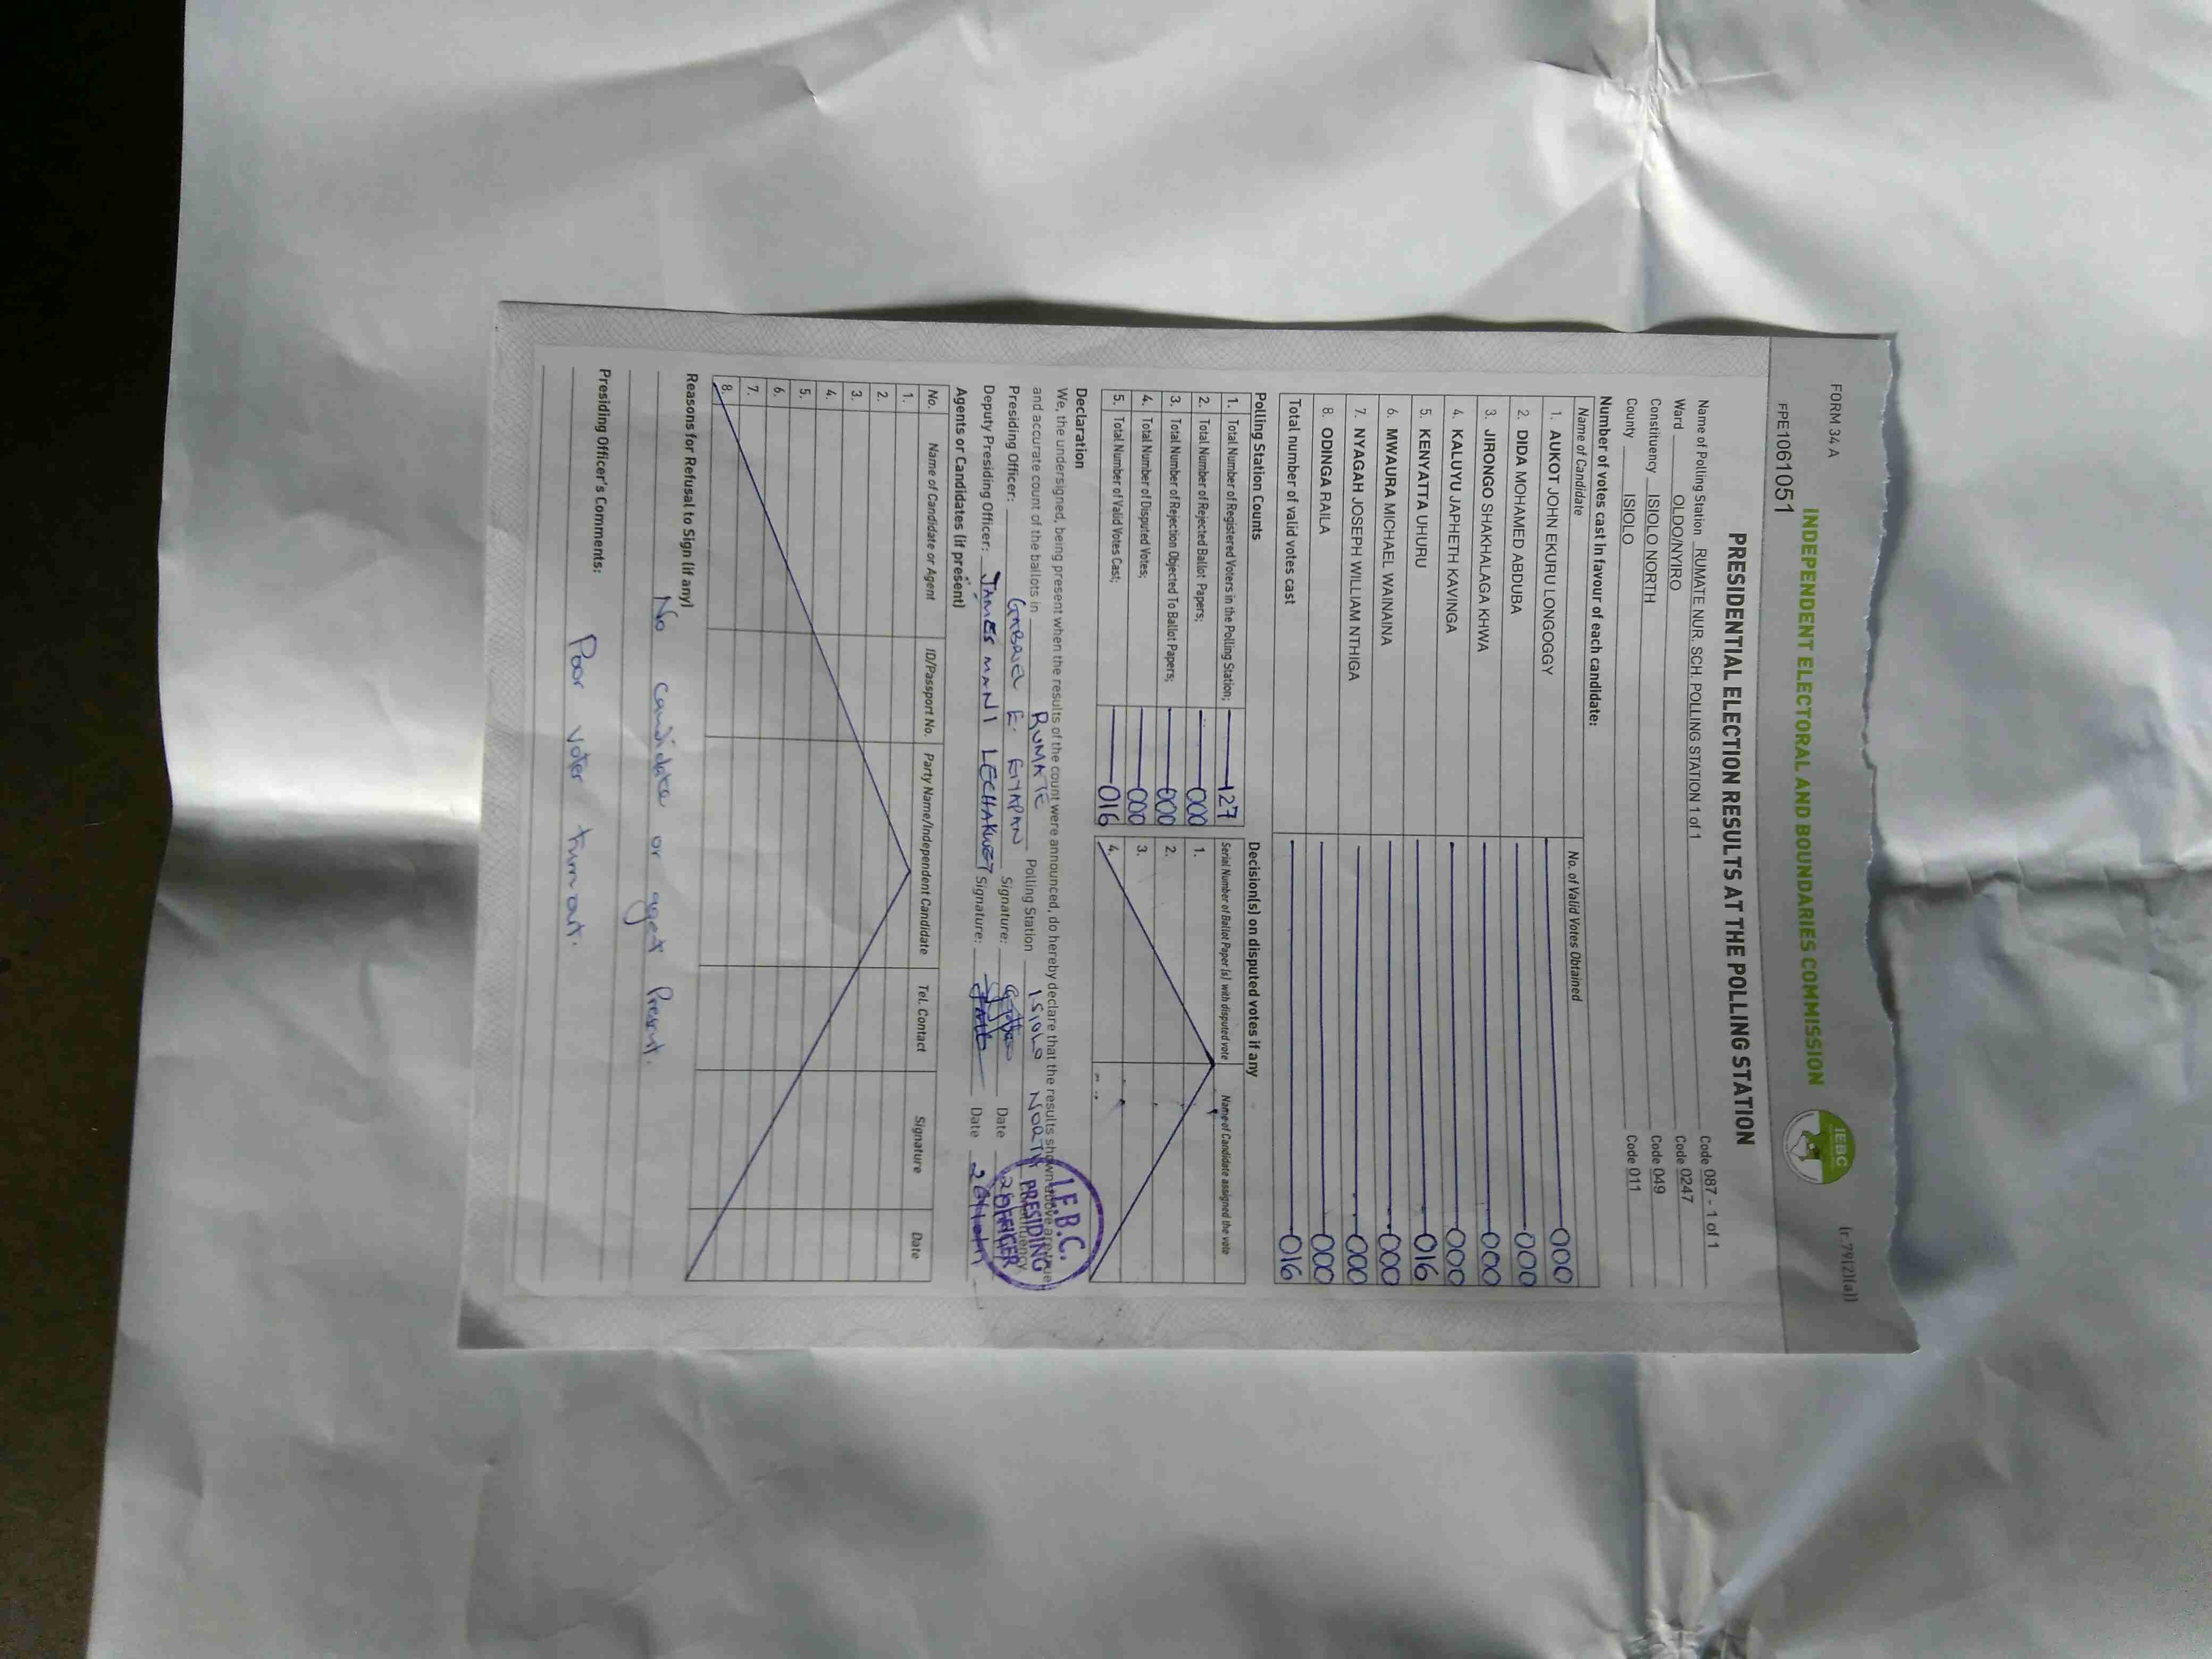 FORM 34 A
(r 79(2)(a))
INDEPENDENT ELECTORAL AND BOUNDARIES COMMISSION
IEBC
FPE1061051
PRESIDENTIAL ELECTION RESULTS AT THE POLLING STATION
Name of Polling Station RUMATE NUR. SCH. POLLING STATION 1 of 1 Code 087 - 1 of 1
Ward OLDO/NYIRO Code 0247
Constituency ISIOLO NORTH Code 049
County ISIOLO Code 011
Number of votes cast in favour of each candidate:
Name of Candidate No. of Valid Votes Obtained
1. AUKOT JOHN EKURU LONGOGGY 000
2. DIDA MOHAMED ABDUBA 000
3. JIRONGO SHAKHALAGA KHWA 000
4. KALUYU JAPHETH KAVINGA 000
5. KENYATTA UHURU 016
6. MWAURA MICHAEL WAINAINA 000
7. NYAGAH JOSEPH WILLIAM NTHIGA 000
8. ODINGA RAILA 000
Total number of valid votes cast 016
Polling Station Counts
1. Total Number of Registered Voters in the Polling Station; 127
2. Total Number of Rejected Ballot Papers; 000
3. Total Number of Rejection Objected To Ballot Papers; 000
4. Total Number of Disputed Votes; 000
5. Total Number of Valid Votes Cast; 016
Decision(s) on disputed votes if any
Serial Number of Ballot Paper (s) with disputed vote Name of Candidate assigned the vote
1.
2.
3.
4.
Declaration
We, the undersigned, being present when the results of the count were announced, do hereby declare that the results shown above are true
and accurate count of the ballots in RUMATE Polling Station ISIOLO NORTH Constituency
Presiding Officer: GABRIEL E. Signature: Date
Deputy Presiding Officer: JAMES MANI LECHAKWET Signature: Date
I.E.B.C.
PRESIDING
OFFICER
Agents or Candidates (if present)
No. Name of Candidate or Agent ID/Passport No. Party Name/Independent Candidate Tel. Contact Signature Date
1.
2.
3.
4.
5.
6.
7.
8.
Reasons for Refusal to Sign (if any)
No candidate or agent Present.
Presiding Officer's Comments:
Poor voter turnout.